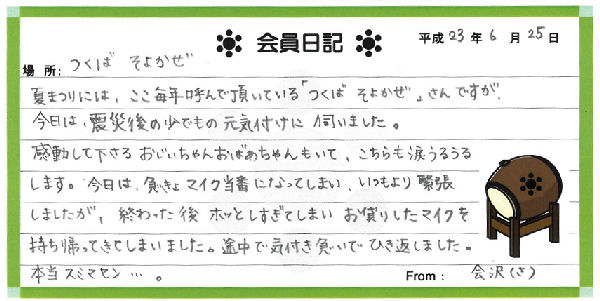 会員日記
平成23年6月25日
場所：つくば そよかぜ
夏まつりには、ここ毎年呼んで頂いている「つくば そよかぜ」さんですが、
今日は、震災後の少でもの元気付けに伺いました。
感動して下さる おじいちゃんおばあちゃんもいて、こちらも涙うるうる
します。今日は、急きょマイク当番になってしまい、いつもより緊張
しましたが、終わった後 ホッとしすぎてしまい お貸りしたマイクを
持ち帰ってきてしまいました。途中で気付き急いで ひき返しました。
本当スミマセン…。
From: 会沢(さ)